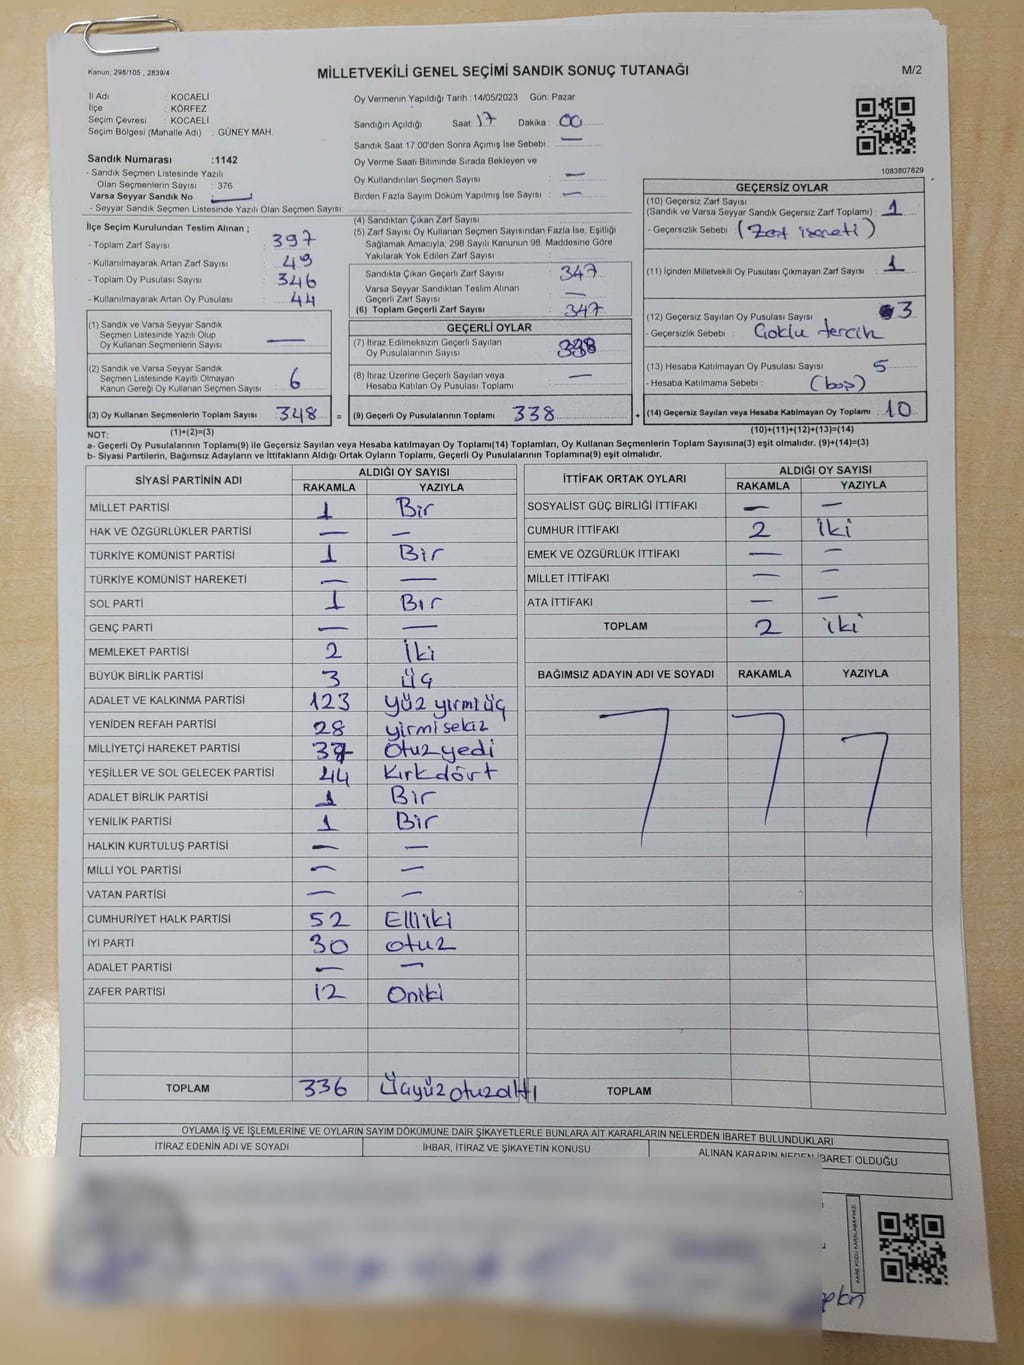 Kanun: 298/105 , 2839/4
MİLLETVEKİLİ GENEL SEÇİMİ SANDIK SONUÇ TUTANAĞI
M/2
İl Adı : KOCAELİ
İlçe : KÖRFEZ
Seçim Çevresi : KOCAELİ
Seçim Bölgesi (Mahalle Adı) : GÜNEY MAH.
Sandık Numarası :1142
- Sandık Seçmen Listesinde Yazılı
Olan Seçmenlerin Sayısı : 376
Varsa Seyyar Sandık No : —
- Seyyar Sandık Seçmen Listesinde Yazılı Olan Seçmen Sayısı:
Oy Vermenin Yapıldığı Tarih :14/05/2023 Gün: Pazar
Sandığın Açıldığı Saat: 17 Dakika : 00
Sandık Saat 17:00'den Sonra Açımış İse Sebebi : —
Oy Verme Saati Bitiminde Sırada Bekleyen ve
Oy Kullandırılan Seçmen Sayısı : —
Birden Fazla Sayım Döküm Yapılmış İse Sayısı : —
1083807829
İlçe Seçim Kurulundan Teslim Alınan ;
- Toplam Zarf Sayısı : 397
- Kullanılmayarak Artan Zarf Sayısı : 49
- Toplam Oy Pusulası Sayısı : 346
- Kullanılmayarak Artan Oy Pusulası : 44
(1) Sandık ve Varsa Seyyar Sandık
Seçmen Listesinde Yazılı Olup
Oy Kullanan Seçmenlerin Sayısı : —
(2) Sandık ve Varsa Seyyar Sandık
Seçmen Listesinde Kayıtlı Olmayan
Kanun Gereği Oy Kullanan Seçmen Sayısı : 6
(3) Oy Kullanan Seçmenlerin Toplam Sayısı : 348 =
(4) Sandıktan Çıkan Zarf Sayısı :
(5) Zarf Sayısı Oy Kullanan Seçmen Sayısından Fazla İse, Eşitliği
Sağlamak Amacıyla, 298 Sayılı Kanunun 98. Maddesine Göre
Yakılarak Yok Edilen Zarf Sayısı :
Sandıkta Çıkan Geçerli Zarf Sayısı : 347
Varsa Seyyar Sandıktan Teslim Alınan
Geçerli Zarf Sayısı : —
(6) Toplam Geçerli Zarf Sayısı : 347
GEÇERLİ OYLAR
(7) İtiraz Edilmeksizin Geçerli Sayılan
Oy Pusulalarının Sayısı : 338
(8) İtiraz Üzerine Geçerli Sayılan veya
Hesaba Katılan Oy Pusulası Toplamı : —
(9) Geçerli Oy Pusulalarının Toplamı : 338 +
GEÇERSİZ OYLAR
(10) Geçersiz Zarf Sayısı
(Sandık ve Varsa Seyyar Sandık Geçersiz Zarf Toplamı) : 1
- Geçersizlik Sebebi : (Zarf işareti)
(11) İçinden Milletvekili Oy Pusulası Çıkmayan Zarf Sayısı : 1
(12) Geçersiz Sayılan Oy Pusulası Sayısı : 3
- Geçersizlik Sebebi : Çoklu tercih
(13) Hesaba Katılmayan Oy Pusulası Sayısı : 5
- Hesaba Katılmama Sebebi : (boş)
(14) Geçersiz Sayılan veya Hesaba Katılmayan Oy Toplamı : 10
NOT: (1)+(2)=(3) (10)+(11)+(12)+(13)=(14)
a- Geçerli Oy Pusulalarının Toplamı(9) ile Geçersiz Sayılan veya Hesaba katılmayan Oy Toplamı(14) Toplamları, Oy Kullanan Seçmenlerin Toplam Sayısına(3) eşit olmalıdır. (9)+(14)=(3)
b- Siyasi Partilerin, Bağımsız Adayların ve İttifakların Aldığı Ortak Oyların Toplamı, Geçerli Oy Pusulalarının Toplamına(9) eşit olmalıdır.
SİYASİ PARTİNİN ADI ALDIĞI OY SAYISI
RAKAMLA YAZIYLA
MİLLET PARTİSİ 1 Bir
HAK VE ÖZGÜRLÜKLER PARTİSİ — —
TÜRKİYE KOMÜNİST PARTİSİ 1 Bir
TÜRKİYE KOMÜNİST HAREKETİ — —
SOL PARTİ 1 Bır
GENÇ PARTİ — —
MEMLEKET PARTİSİ 2 İki
BÜYÜK BİRLİK PARTİSİ 3 Üç
ADALET VE KALKINMA PARTİSİ 123 yüz yirmi üç
YENİDEN REFAH PARTİSİ 28 yirmi sekiz
MİLLİYETÇİ HAREKET PARTİSİ 37 Otuz yedi
YEŞİLLER VE SOL GELECEK PARTİSİ 44 Kırk dört
ADALET BİRLİK PARTİSİ 1 Bir
YENİLİK PARTİSİ 1 Bir
HALKIN KURTULUŞ PARTİSİ — —
MİLLİ YOL PARTİSİ — —
VATAN PARTİSİ — —
CUMHURİYET HALK PARTİSİ 52 Elliiki
İYİ PARTİ 30 otuz
ADALET PARTİSİ — —
ZAFER PARTİSİ 12 Oniki
TOPLAM 336 Üçyüz otuzaltı
İTTİFAK ORTAK OYLARI ALDIĞI OY SAYISI
RAKAMLA YAZIYLA
SOSYALİST GÜÇ BİRLİĞİ İTTİFAKI — —
CUMHUR İTTİFAKI 2 İki
EMEK VE ÖZGÜRLÜK İTTİFAKI — —
MİLLET İTTİFAKI — —
ATA İTTİFAKI — —
TOPLAM 2 iki
BAĞIMSIZ ADAYIN ADI VE SOYADI RAKAMLA YAZIYLA
TOPLAM
OYLAMA İŞ VE İŞLEMLERİNE VE OYLARIN SAYIM DÖKÜMÜNE DAİR ŞİKAYETLERLE BUNLARA AİT KARARLARIN NELERDEN İBARET BULUNDUKLARI
İTİRAZ EDENİN ADI VE SOYADI İHBAR, İTİRAZ VE ŞİKAYETİN KONUSU ALINAN KARARIN NEDEN İBARET OLDUĞU
KARE KODU KARALAMAYINIZ